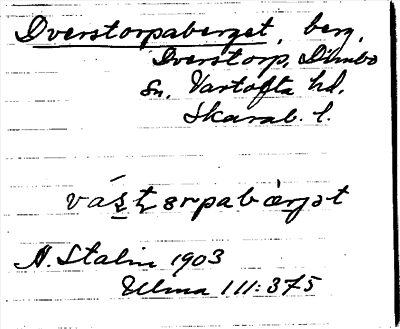 Dverstorpaberget, berg,
Dverstorp, Dimbo
sn, Vartofta hd.
Skarab. l.
A. Stalin 1903
Ulma 111:375